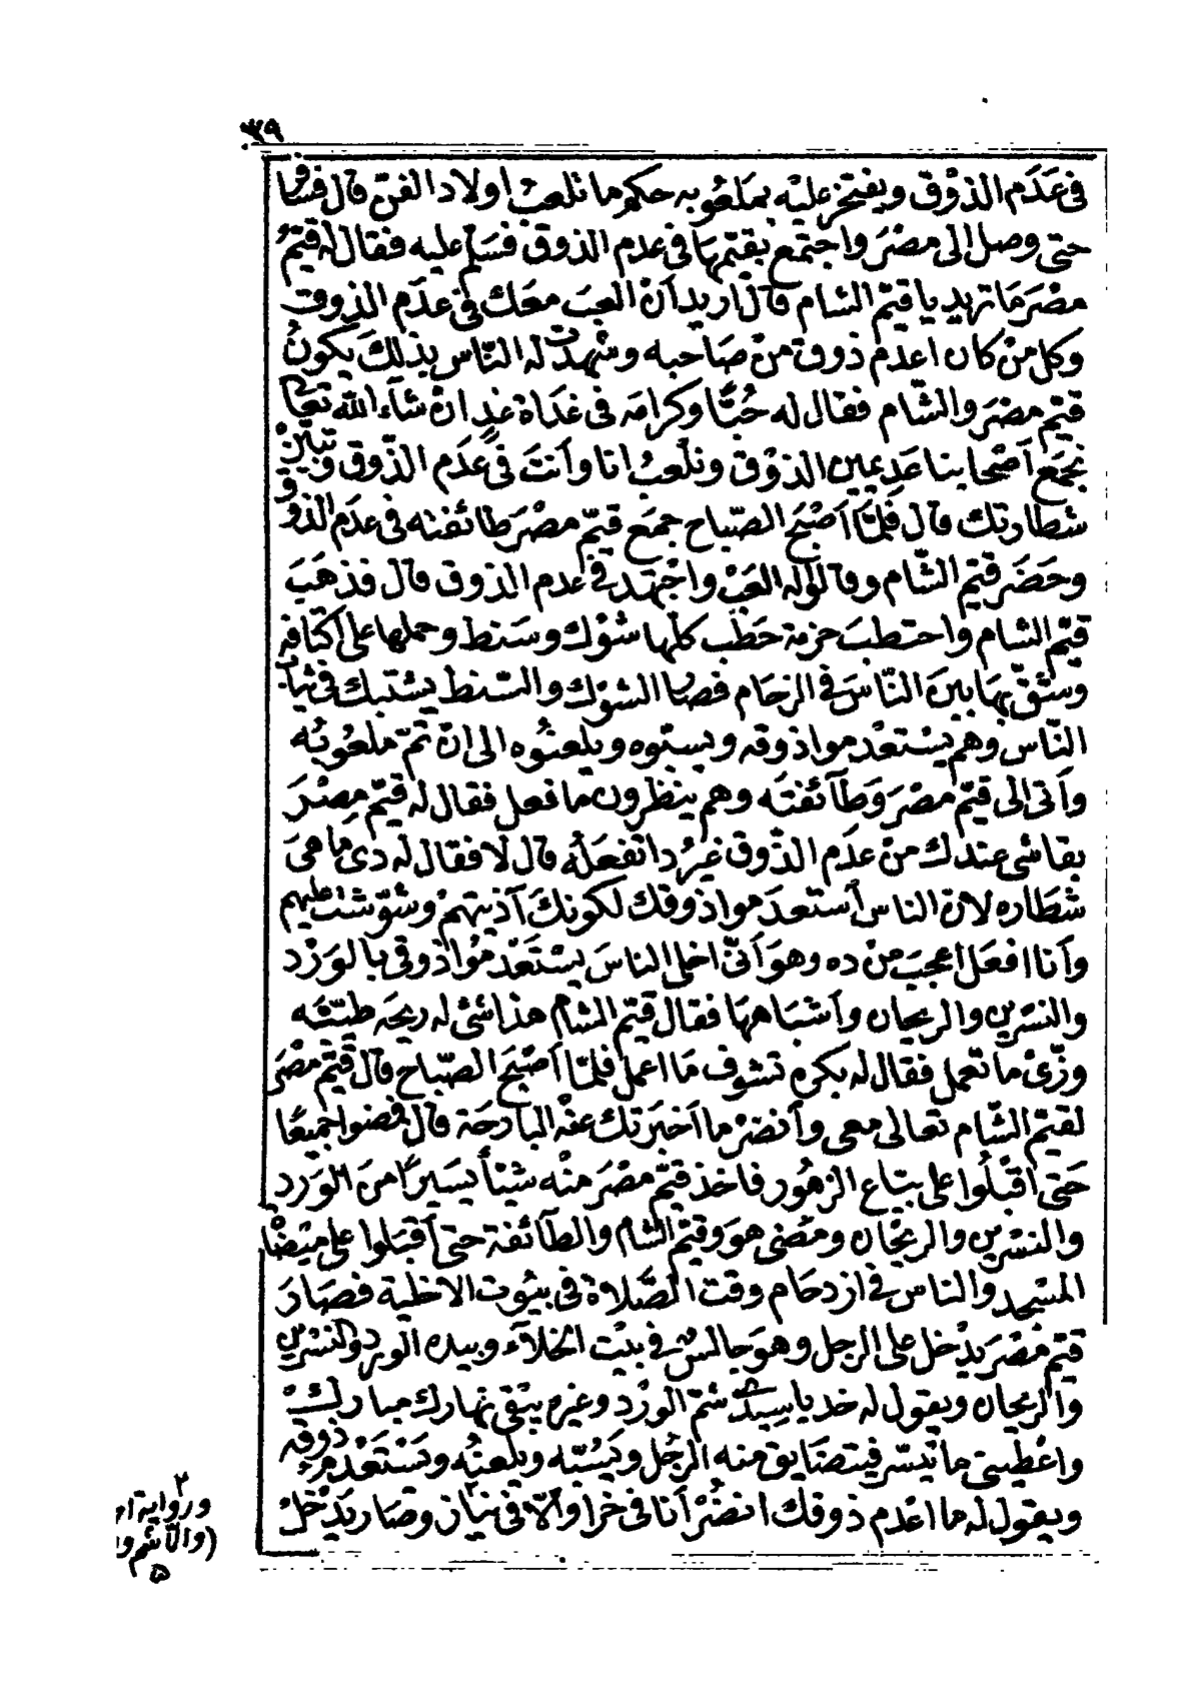 ٣٩
فى عَدَم الذوْق ويفتخر عليْه بملعُوبه حكم ما تلعبُ اولاد الفنّ قال فسَافر
حتى وصل الى مصْرَ واجتمع بقيّمهَا فى عدم الذوق فسَلم عليه فقال له قيّمُ
مصْرَ مَا تريد يا قيّم الشام قال اريد اَنْ العبَ معَك فى عدَم الذوق
وكل منْ كان اعدم ذوق منْ صَاحبه وشهدَتْ له النّاس بذلكَ يكونُ
قيّم مصْرَ والشّام فقال له حُبًّا وكرامه فى غدَاة غدٍ انْ شآء الله تعالى
نجمَع اَصْحابنا عَديمين الذوْق ونلعبُ انا واَنتَ فى عَدَم الذّوق وتبيّنْ
شطارتك قال فلمّا اَصْبَح الصّباح جمَع قيّم مصْرَ طائفته فى عدَم الذوق
وحَضَر قيّم الشّام وقالوا له العَبْ واجْتهد فى عدم الذوق قال فذهَبَ
قيّم الشام واحتطبَ حزمة حَطَب كلّها شوْك وسَنط وحملها على اَكتافه
وشقّ بهَا بينَ النّاسَ فى الزحَام فصَار الشوْك والسّنط يشتبك فى ثيَاب
النّاس وهم يسْتعْدموا ذوقه ويسبّوه ويلعنُوه الى انْ تمّ ملعُوبُه
واَتى الى قيّم مصْرَ وَطآئفتَه وهم ينظرون ما فعل فقال له قيّم مِصْرَ
بقا شى عندك منْ عدَم الذّوق غيرُ دا تفعَلهُ قال لا فقال له دى ما هىَ
شطاره لانّ الناس اَستعدَموا ذوقك لكونكَ آذيتهمْ وشوّشتَ عليهم
واَنا افعَل اعجبَ منْ ده وهوَ اَنّى اخلى الناسَ يسْتَعَدْمُوا ذوقى بالوَرْد
والنسْرين والريحان واَشبَاههَا فقال قيّم الشام هذا شئ له ريحَه طيّبَه
وزّىْ ما تعمل فقال له بكره تشوف مَا اعمل فلمّا اَصْبَحَ الصّباح قال قيّم مصْرَ
لقيّم الشّام تعالى معى واَنضرْ ما اَخبَرتك عنْه البَارحَة قال فمضوا جميعًا
حَتى اقبْلُوا على بيّاع الزهُور فاخذ قيّم مصْرَ منْه شيْئاً يسَيرًا منَ الوَرد
والنسْرين والريْحان ومَضى هوَ وقيّم الشام والطآئفة حتى اَقبَلوا على ميْضَاة
المسْجد والناس فى ازدحَام وقت الصَّلاة فى بيُوت الاخلية فصَارَ
قيّم مْصْرَ يدْخل على الرجل وهوَ جالسٌ فى بيْت الخلآء وبيده الورد والنسْرين
والريحان ويقول له خد يا سِيدى شمّ الوَرْد وغيره يبْقى نهارك مبارك
واعْطينى ما تيسّر فيتضَايق منه الرجُل وَيسُبّه ويلعنُه ويَسْتَعدمْ ذوقه
ويقول له ما اعْدم ذوقك انضُرْ اَنا فى خرا والّا فى نياز وصَار يَدْخلْ
٢
ورواية
(والآ
٥